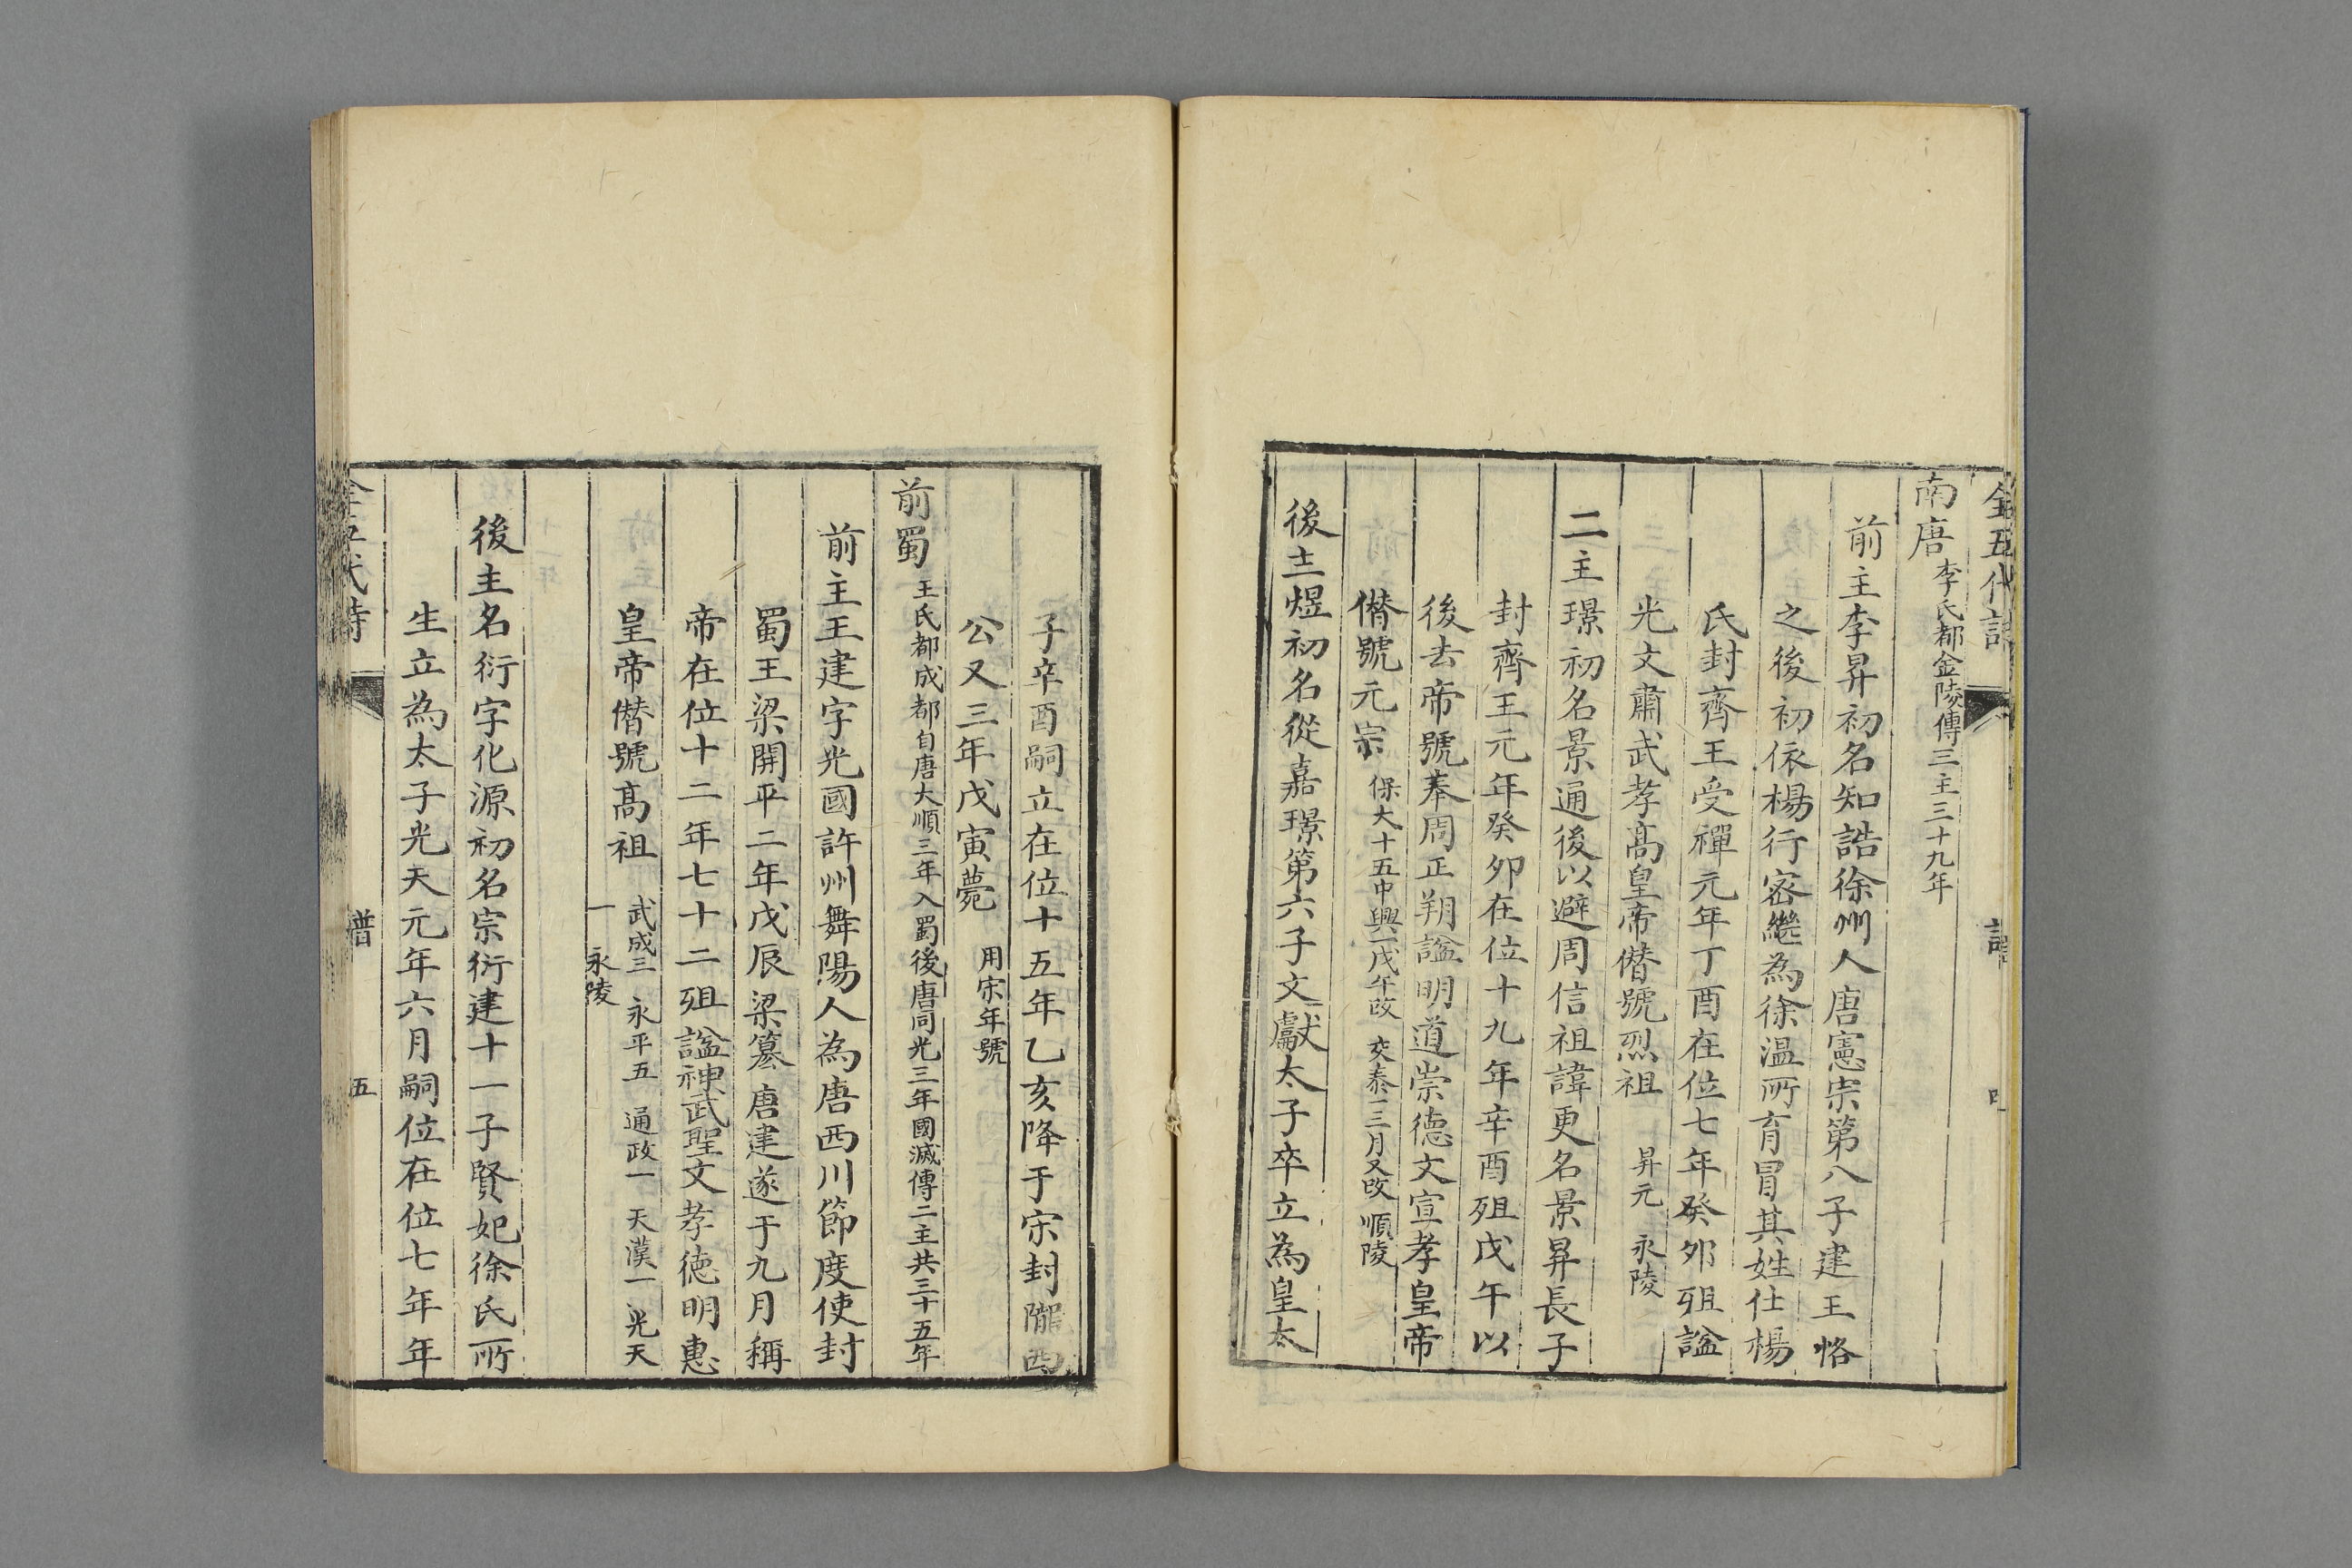 全五代詩
譜
南唐李氏都金陵傳三主三十九年
前主李昇初名知誥徐州人唐憲宗第八子建王恪
之後初依楊行密繼為徐溫所育冒其姓仕楊
氏封齊王受禪元年丁酉在位七年癸夘殂諡
光文肅武孝高皇帝僭號烈祖 昇元 永陵
二主璟初名景通後以避周信祖諱更名景昇長子
封齊王元年癸夘在位十九年辛酉殂戊午以
後去帝號奉周正朔諡明道崇德文宣孝皇帝
僭號元宗 保大十五中興一戊午改 交泰一三月又改 順陵
後主煜初名從嘉璟第六子文獻太子卒立為皇太
子辛酉嗣立在位十五年乙亥降于宋封隴西
公又三年戊寅薨 用宋年號
前蜀 王氏都成都自唐大順三年入蜀後唐同光三年國滅傳二主共三十五年
前主王建字光國許州舞陽人為唐西川節度使封
蜀王梁開平二年戊辰梁簒唐建遂于九月稱
帝在位十二年七十二殂諡神武聖文孝德明惠
皇帝僭號高祖 武成三 永平五 通政一 天漢一 光天
一 永陵
後主名衍字化源初名宗衍建十一子賢妃徐氏所
生立為太子光天元年六月嗣位在位七年年
全五代詩
譜
五